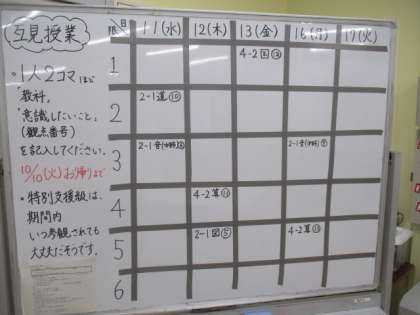 互見授業
・1人2コマほど
教科、
意識したいこと。
(観点番号)
を記入してください。
10/10(火)お帰りまで
・特別支援級は、
期間内
いつ参観されても
大丈夫だそうです。
11(水) 12(木) 13(金) 16(月) 17(火)
1 4-2
2 2-1道⑩
3 2-1音 2-1音
4 4-2算
5 2-1図⑤ 4-2算
6